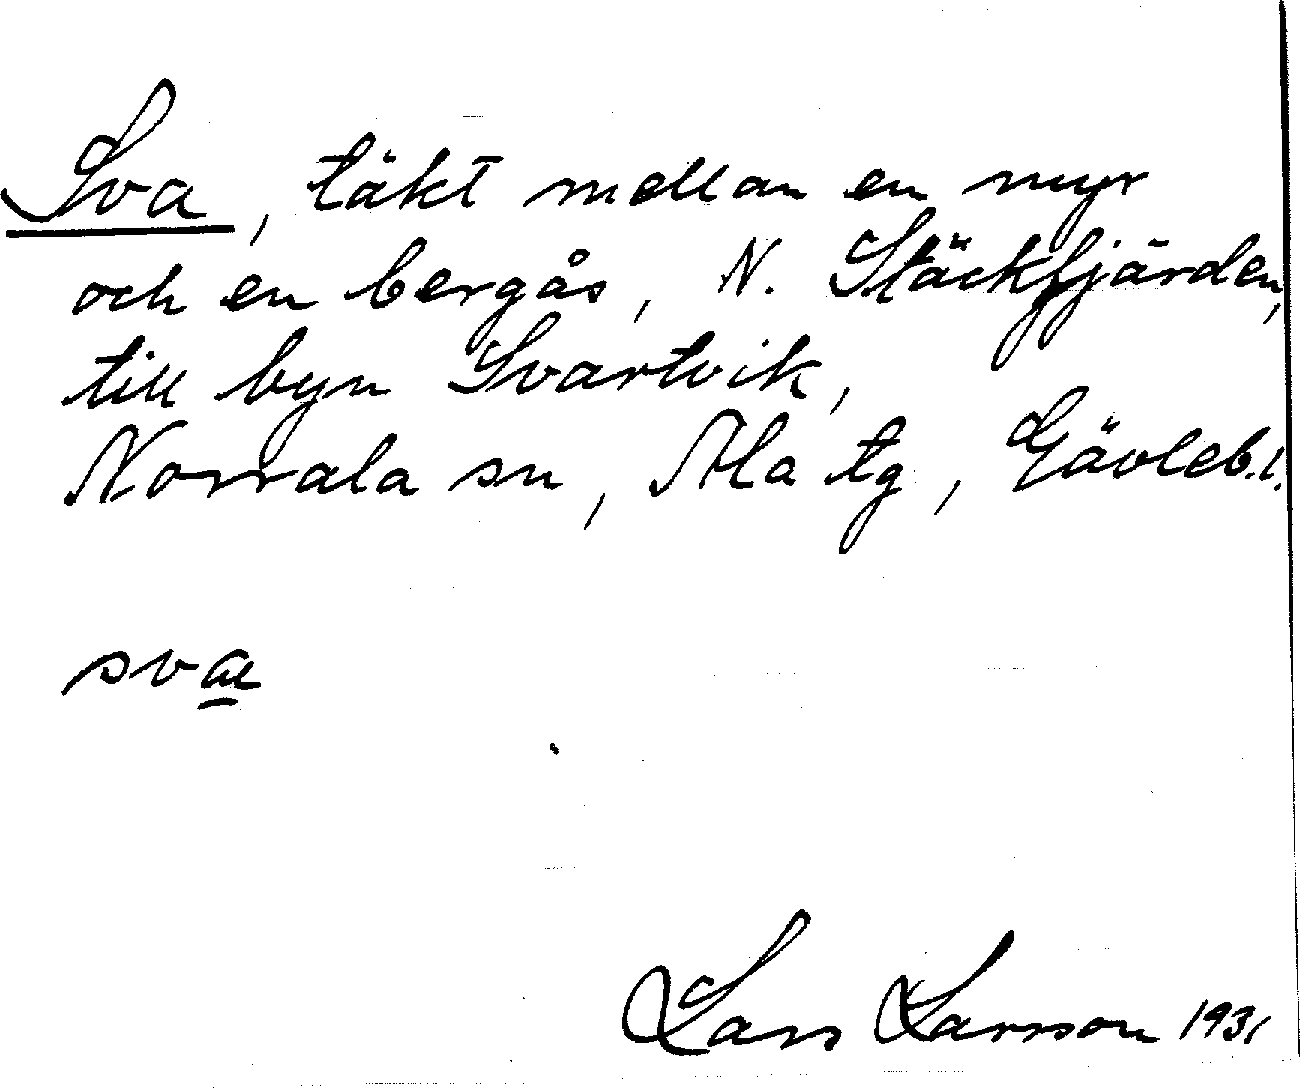 Sva, täkt mellan en myr
och en bergås, N. Stäckfjärden,
till byn Svartvik,
Norrala sn, Ala tg, Gävleb.l.
svɑ
Lars Larsson 1931